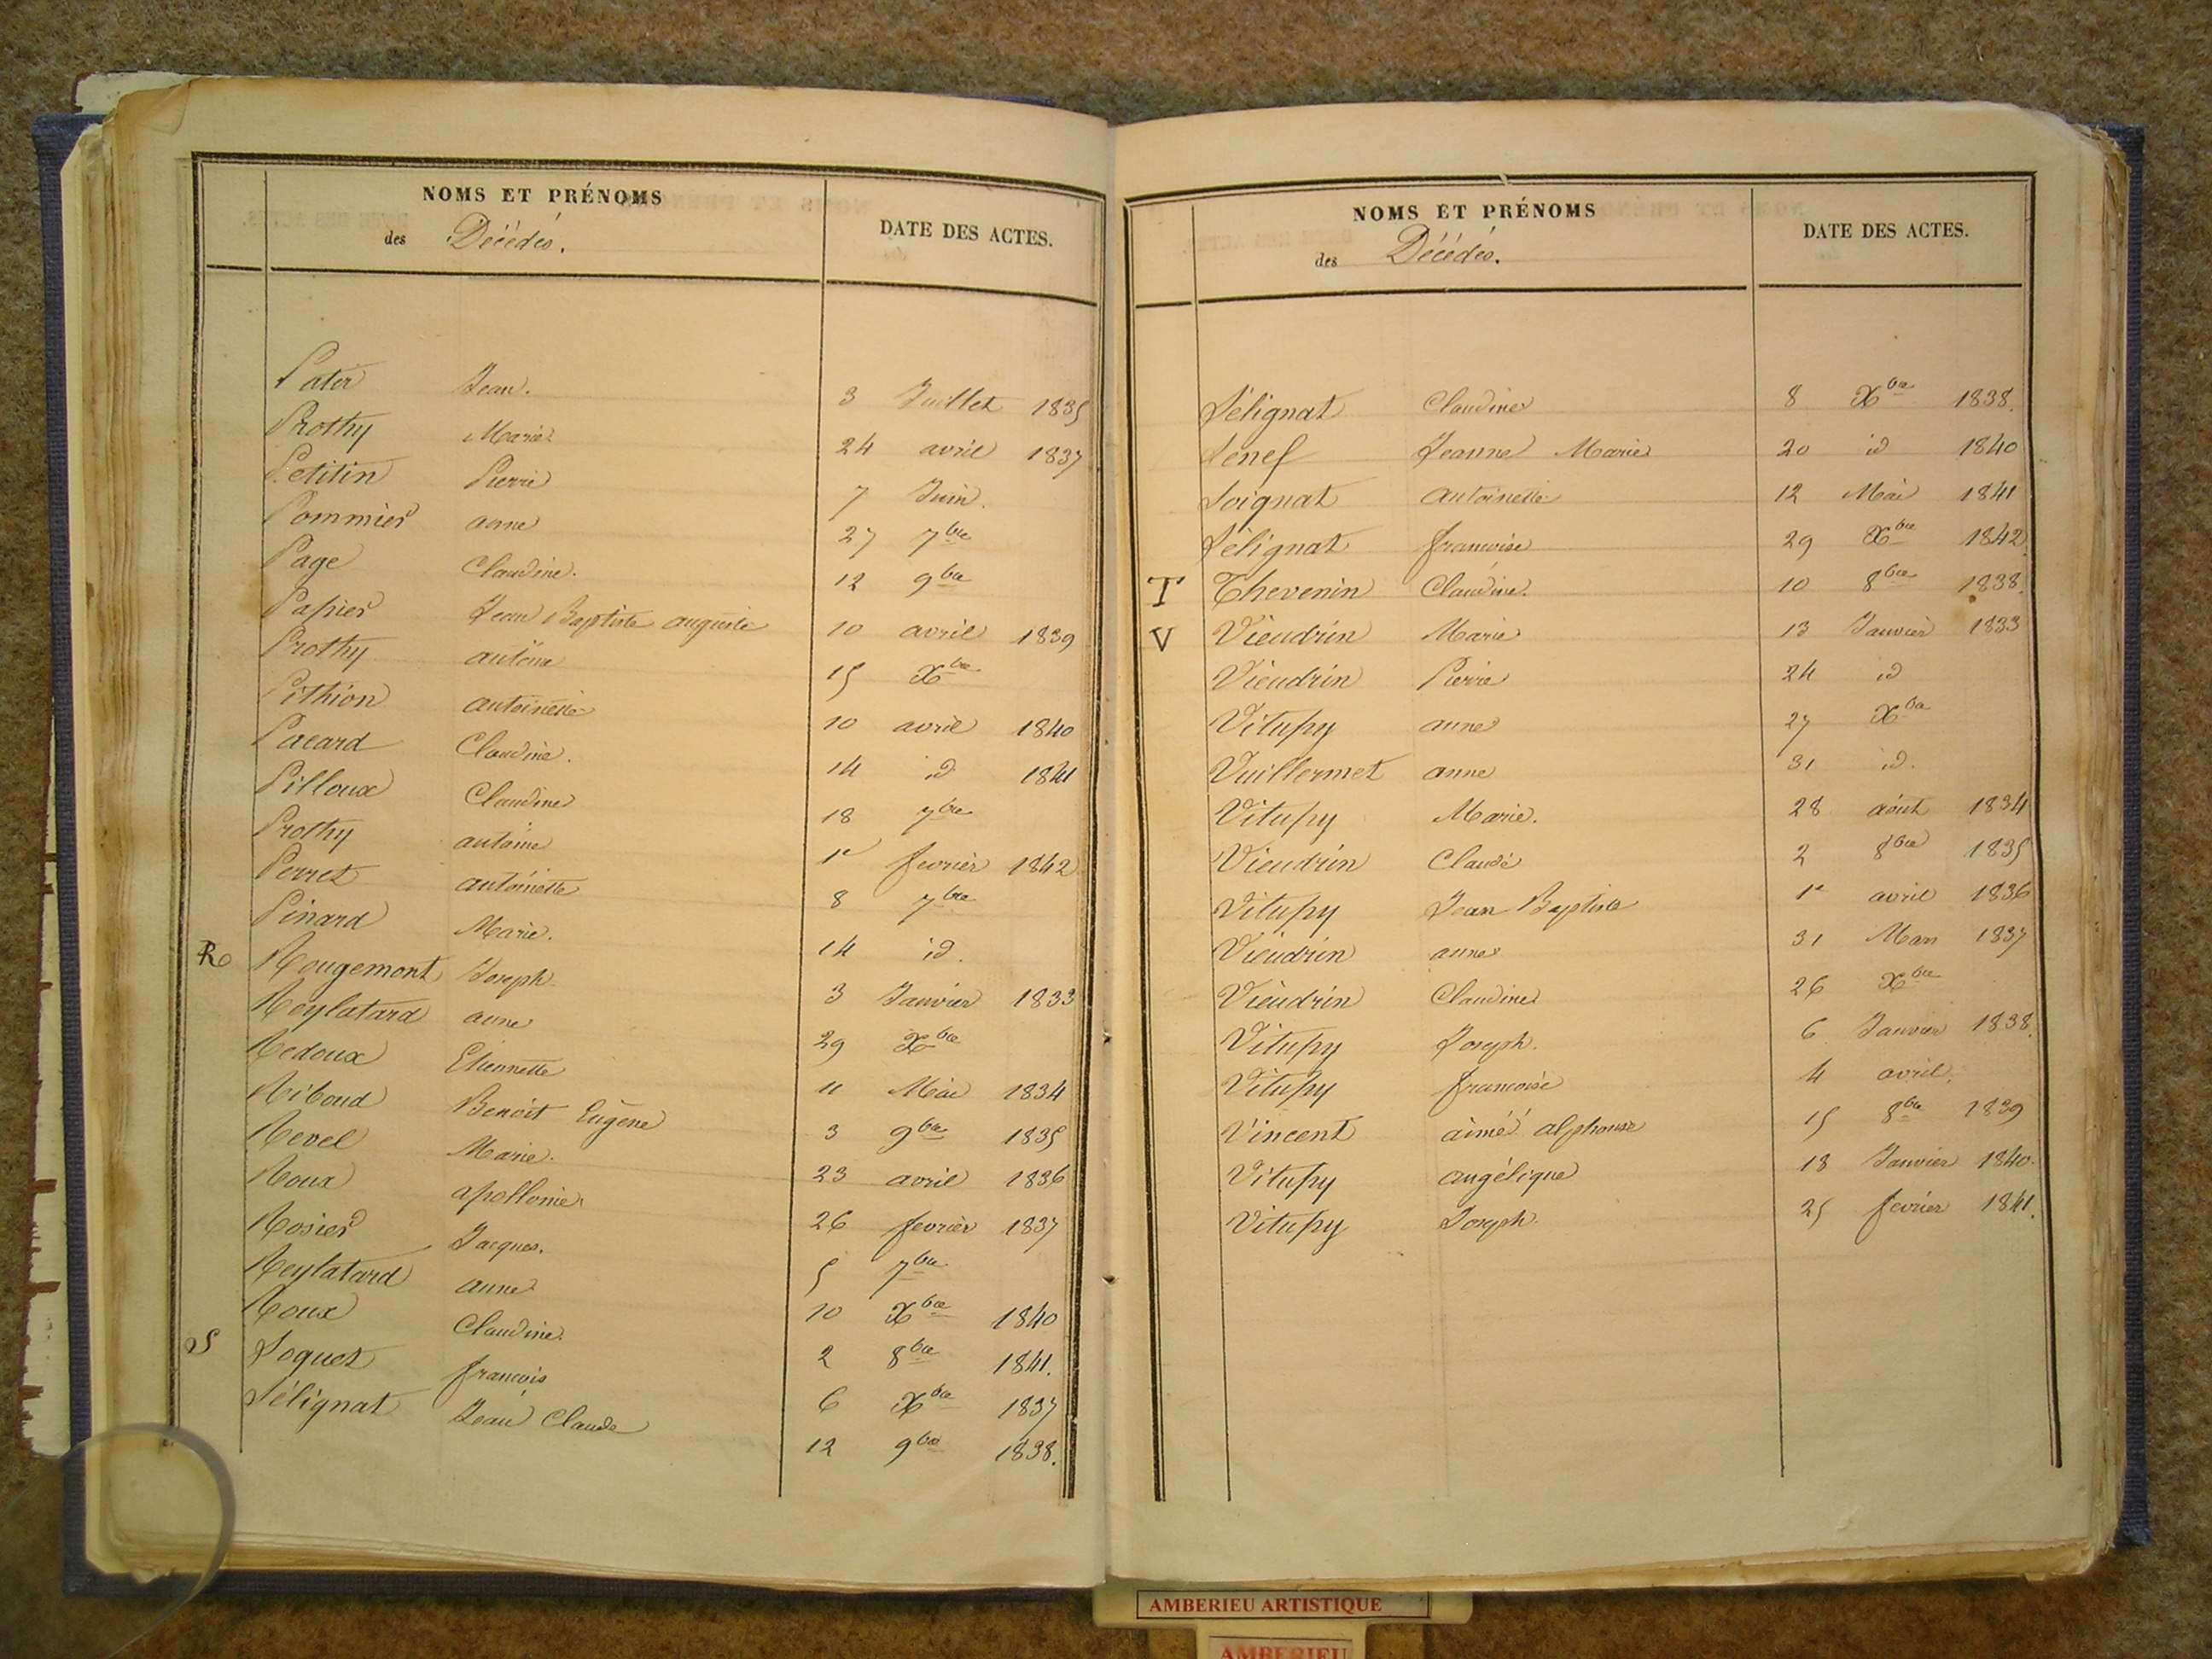 NOMS ET PRÉNOMS
des Décédés.
DATE DES ACTES.
Pater Jean. 3 Juillet 1835
Prothy Marie 24 avril 1837
Petitin Pierre 7 Juin.
Pommier anne 27 7bre
Page Claudine. 12 9bre
Papier Jean Baptiste auguste 10 avril 1839
Prothy antoine 15 Xbre
Pithion antoinette 10 avril 1840
Pacard Claudine. 14 id 1841
Pilloux Claudine 18 7bre
Prothy antoine 1er fevrier 1842
Perret antoinette 8 7bre
Pinard Marie. 14 id.
R Rougemont Joseph 3 Janvier 1833
Reylatard anne 29 Xbre
Redoux Etiennette 11 Mai 1834
Riboud Benoit Eugène 3 9bre 1835
Revel Marie. 23 avril 1836
Roux apollonie 26 fevrier 1837
Rosier Jacques. 5 7bre
Reylatard anne 10 Xbre 1840
Roux Claudine. 2 8bre 1841.
S Soquet francois 6 Xbre 1837
Sélignat Jean Claude 12 9bre 1838.
NOMS ET PRÉNOMS
des Décédés.
DATE DES ACTES.
Sélignat Claudine 8 Xbre 1838.
Senef Jeanne Marie 20 id 1840
Soignat antoinette 12 Mai 1841
Sélignat francoise 29 Xbre 1842
T Thevenin Claudine. 10 8bre 1838.
V Vieudrin Marie 13 Janvier 1833
Vieudrin Pierre 24 id
Vitupy anne 27 Xbre
Vuillermet anne 31 id.
Vitupy Marie. 28 août 1834
Vieudrin Claude 2 8bre 1835
Vitupy Jean Baptiste 1er avril 1836
Vieudrin anne 31 Mars 1837
Vieudrin Claudine 26 Xbre
Vitupy Joseph. 6 Janvier 1838.
Vitupy francoise 4 avril.
Vincent aimé alphonse 15 8bre 1839
Vitupy angélique 18 Janvier 1840.
Vitupy Joseph 25 fevrier 1841.
AMBERIEU ARTISTIQUE
AMBERIEU